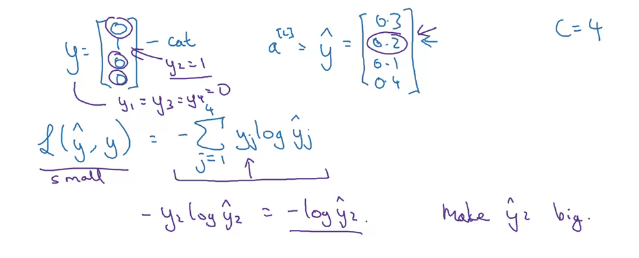 y = [0 1 0 0] - cat
y₂ = 1
y₁ = y₃ = y₄ = 0
a^[L] = ŷ = [0.3 0.2 0.1 0.4]
C = 4
L(ŷ, y) = - ∑_{j=1}^{4} yⱼ log ŷⱼ
small
- y₂ log ŷ₂ = - log ŷ₂.
Make ŷ₂ big.